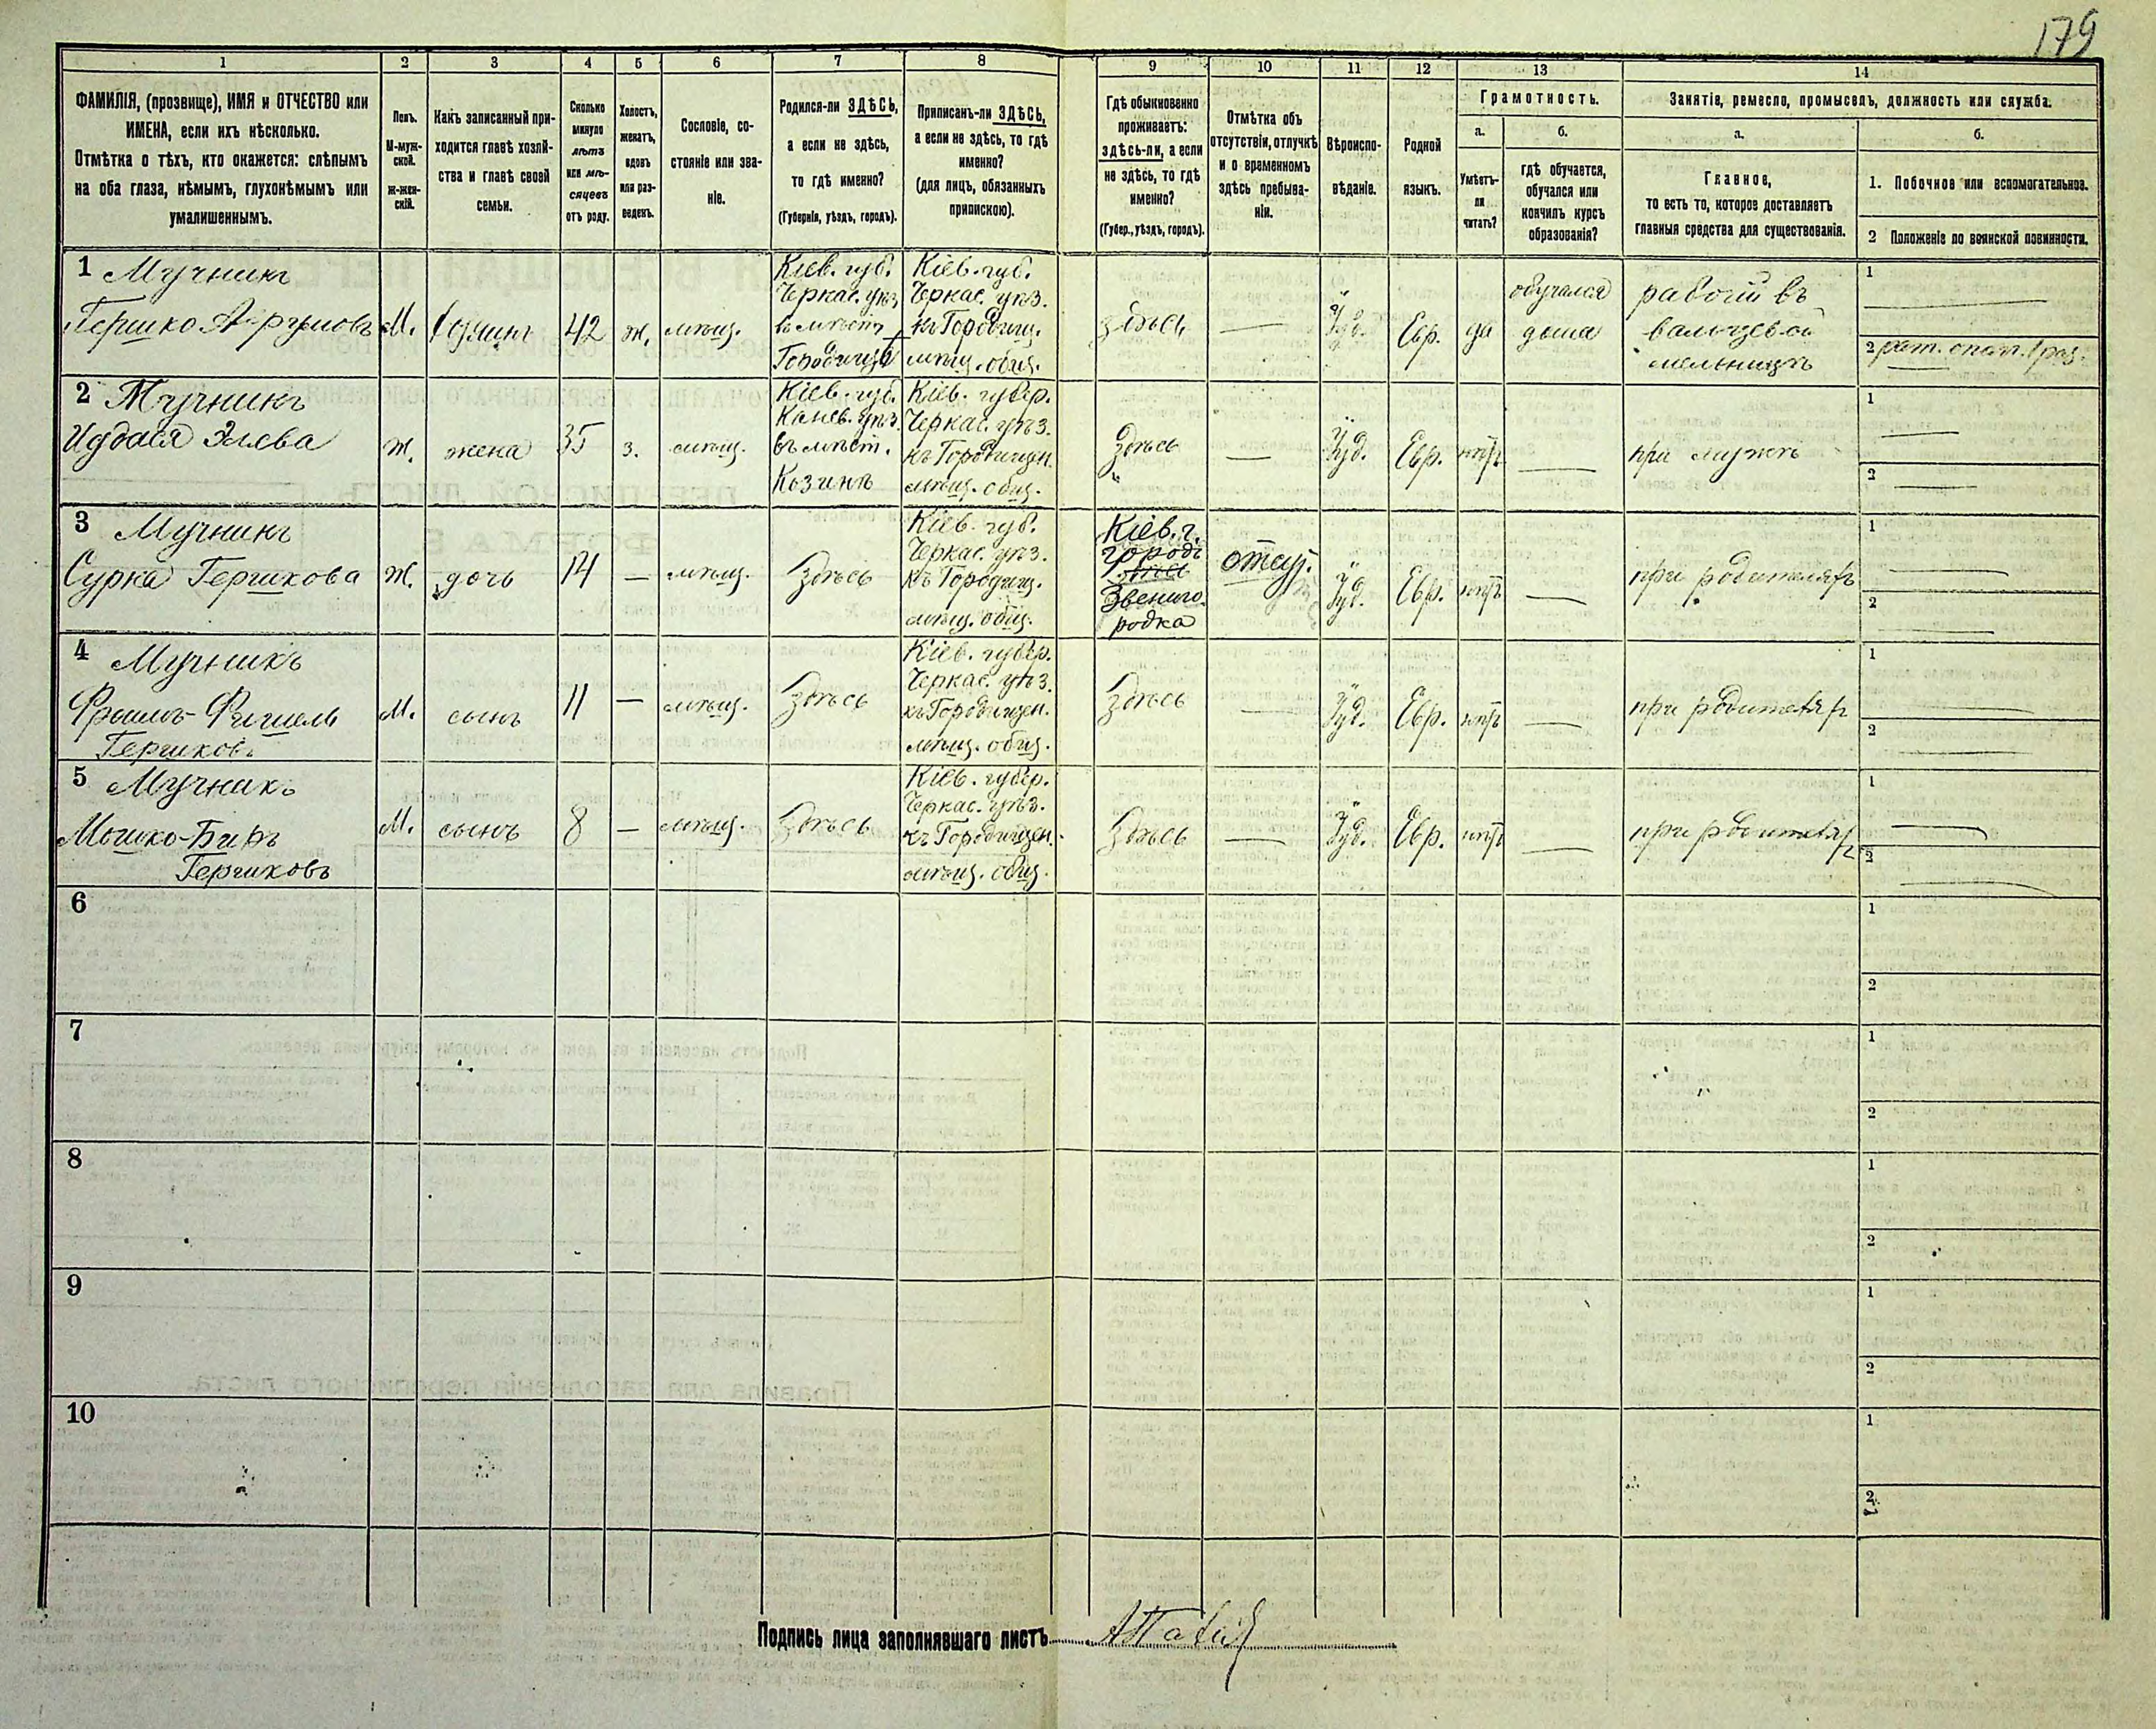 179
1 2 3 4 5 6 7 8 9 10 11 12 13 14
ФАМИЛІЯ, (прозвище), ИМЯ и ОТЧЕСТВО или
ИМЕНА, если ихъ нѣсколько.
Отмѣтка о тѣхъ, кто окажется: слѣпымъ
на оба глаза, нѣмымъ, глухонѣмымъ или
умалишеннымъ.
Полъ.
М-муж-
ской.
ж-жен-
скій.
Какъ записанный при-
ходится главѣ хозяй-
ства и главѣ своей
семьи.
Сколько
минуло
лѣтъ
или мѣ-
сяцевъ
отъ роду.
Холостъ,
женатъ,
вдовъ
или раз-
веденъ.
Сословіе, со-
стояніе или зва-
ніе.
Родился-ли ЗДѢСЬ,
а если не здѣсь,
то гдѣ именно?
(Губернія, уѣздъ, городъ).
Приписанъ-ли ЗДѢСЬ,
а если не здѣсь, то гдѣ
именно?
(для лицъ, обязанныхъ
припискою).
Гдѣ обыкновенно
проживаетъ:
здѣсь-ли, а если
не здѣсь, то гдѣ
именно?
(Губер., уѣздъ, городъ).
Отмѣтка объ
отсутствіи, отлучкѣ
и о временномъ
здѣсь пребыва-
ніи.
Вѣроиспо-
вѣданіе.
Родной
языкъ.
Грамотность.
а.
Умѣетъ-
ли
читать?
б.
гдѣ обучается,
обучался или
кончилъ курсъ
образованія?
Занятіе, ремесло, промыселъ, должность или служба.
а.
Главное,
то есть то, которое доставляетъ
главныя средства для существованія.
б.
1. Побочное или вспомогательное.
2 Положеніе по воинской повинности.
1 Мучникъ
Гершко
М.
42
ж.
мѣщ.
Кіев. губ.
Черкас. уѣз.
въ мѣст.
Городищѣ
Кіев. губ.
Черкас. уѣз.
къ Городищ.
мѣщ. общ.
здѣсь
Іуд.
Евр.
да
обучался
дома
рабочій въ
вальцевой
мельницѣ
1
2 рат. опол. 1 раз.
2 Мучникъ
ж.
жена
35
з.
мѣщ.
Кіев. губ.
Канев. уѣз.
въ мѣст.
Козинъ
Кіев. губер.
Черкас. уѣз.
къ Городищен.
мѣщ. общ.
Здѣсь
Іуд.
Евр.
нѣтъ
при мужѣ
1
2
3 Мучникъ
Сурка Гершкова
Ж.
дочь
14
мѣщ.
Здѣсь
Кіев. губ.
Черкас. уѣз.
къ Городищ.
мѣщ. общ.
Кіев. г.
городъ
Звениго-
родка
отсут.
Іуд.
Евр.
нѣтъ
при родителяхъ
1
2
4 Мучникъ
Фроимъ-Фишель
Гершковъ
М.
сынъ
11
мѣщ.
Здѣсь
Кіев. губер.
Черкас. уѣз.
къ Городищен.
мѣщ. общ.
Здѣсь
Іуд.
Евр.
нѣтъ
при родителях
1
2
5 Мучникъ
Мошко-Беръ
Гершковъ
М.
сынъ
8
мѣщ.
Здѣсь
Кіев. губер.
Черкас. уѣз.
къ Городищен.
мѣщ. общ.
Здѣсь
Іуд.
Евр.
нѣтъ
при родителях
1
2
6
1
2
7
1
2
8
1
2
9
1
2
10
1
2
Подпись лица заполнявшаго листъ